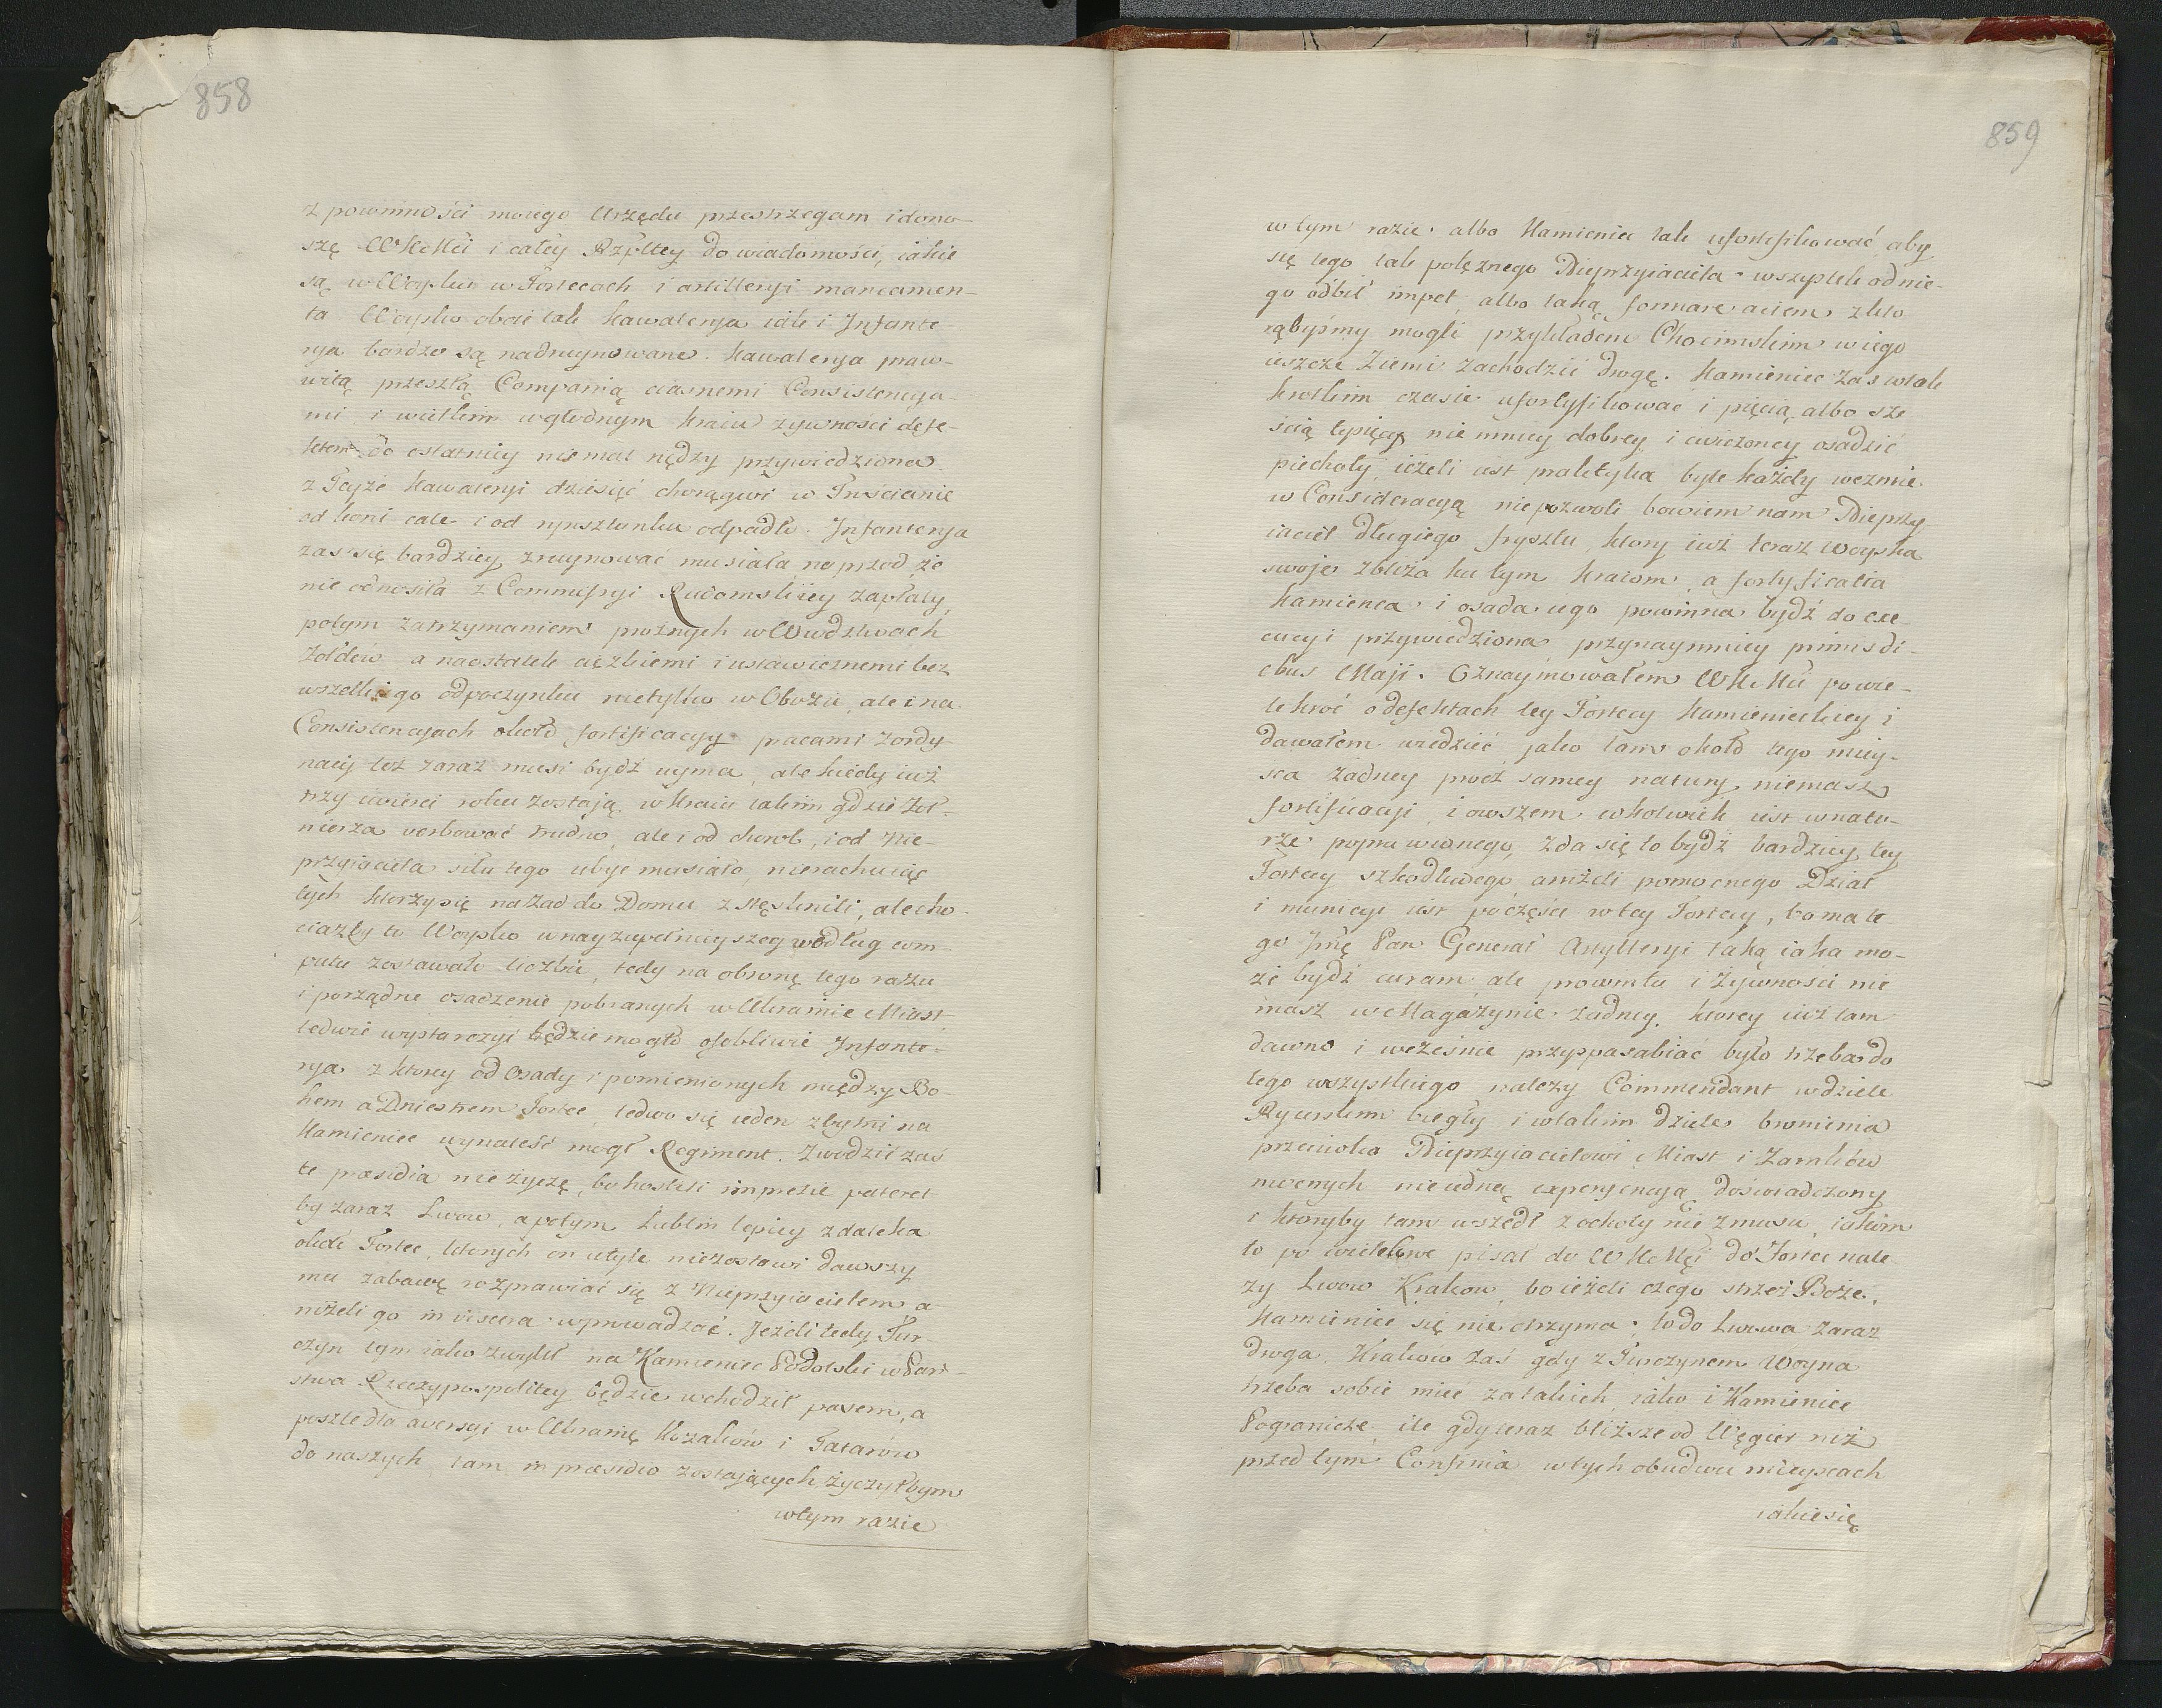 858
z powinności moiego Urzędu przestrzegam i dono-
szę WKMci i całey Rzpltey do wiadomości, iakie
są w Woysku w Fortecach i artilleryi mancamen-
ta. Woysko oboie tak Kawalerya iak i Infante-
rya bardzo są nadruynowane. Kawalerya praw-
witą przeszłą Companią ciasnemi Consistencya-
mi i wielkim w głodnym kraiu żywności defe-
ktem do ostatniey niemal nędzy przywiedziona.
z Teyże Kawaleryi dziesięć chorągwi w Trościanie
od koni cale i od rynsztunku odpadło. Infanterya
zaś się bardziey zruynować musiała naprzod, że
nie odnosiła z Commissyi Radomskiiey zapłaty,
potym zatrzymaniem prożnych w Wwdztwach
Zołdów a naostatek ciężkiemi i ustawicznemi bez
wszelkiego odpoczynku nietylko w Obozie, ale i na
Consistencyach około fortificacyy pracami zordy-
naciy też zaraz musi bydź uyma, ale kiedy iuż
trzy ćwierci roku zostaią w kraiu takim gdzie Żoł-
nierza verbować trudno, ale i od chorob, i od Nie-
przyiaciela siłu tego ubyć musiało, nierachuiąc
tych ktorzy się nazad do Domu zstęsknili, ale cho-
ciazby to Woysko w nayzupełnieyszey według com-
putu zostawało liczbie, tedy na obronę tego razu
i porządne osadzenie pobranych w Ukrainie Miast,
ledwie wystarczyć będzie mogło osobliwie Infante-
rya z ktorey od Osady i pomienionych między Bo-
hem a Dniestrem Fortec, ledwo się ieden zbytni na
Kamieniec wynaleść mogł Regiment. Zwodzić zaś
te præsidia nie życzę, bo hostili impresie pateret
by zaraz Lwow, a potym Lublin lepiey zdaleka
około Fortec, ktorych on w tyle niezostawi dawszy
mu zabawę rozprawiać się z Nieprzyiacielem a-
niżeli go in viscera wprowadzać. Jeżeli tedy Tur-
czyn tym iako zwykł na Kamieniec Podolski w Pań-
stwa Rzeczypospolitey będzie wchodził pasem, a
poszle dla aversyi w Ukrainę Kozaków i Tatarów
do naszych tam in præsidio zostaiących, życzyłbym
w tym razie
859
w tym razie albo Kamieniec tak ufortifikować, aby
się tego tak potężnego Nieprzyiaciela wszystek od nie-
go odbił impet, albo taką formare aciem z kto-
rąbyśmy mogli przykładem Chocimskim w iego
ieszcze Ziemi zachodzić drogę. Kamieniec zaś w tak
krotkim czasie ufortyfikować i pięcią albo sze-
ścią tysięcy nie mniey dobrey i ćwiczoney osadzić
piechoty, ieżeli iest praktyka byle każdy wezmie
w Consideracyą, niepozwoli bowiem nam Nieprzy-
iaciel długiego frysztu, ktory iuż teraz woyska
swoje zbliża ku tym kraiom, a fortyficatia
Kamienca i osada iego powinna bydź do exe-
cucyi przywiedziona przynaymniey primis di-
ebus Maji. Oznaymowałem WKMci powie-
lekroć o defektach tey Fortecy Kamienieckiey i
dawałem wiedzieć jako tam około tego miey-
sca żadney procz samey natury niemasz
fortificacyi, i owszem cokolwiek iest w natu-
rze poprawionego, zda się to bydź bardziey tey
Fortecy szkodliwego aniżeli pomocnego. Dział
i municyi iest po części w tey Fortecy, bo ma te-
go Jmć Pan Generał Artylleryi taką iaka mo-
że bydź curam, ale prowintu i żywności nie
masz w Magazynie żadney, ktorey iuż tam
dawno i wcześnie przysposabiać było trzeba do
tego wszystkiego należy Commendant w dziele
Rycerskim biegły i w takim dziele bronienia
przeciwko Nieprzyiacielowi Miast i Zamków
mocnych nie iedną experyencyą doświadczony
i ktoryby tam wszedł z ochoty nie z musu, iakom
to po wielekroć pisał do WKMci do Fortec nale-
ży Lwow Krakow, bo ieżeli czego strzeż Boże
Kamieniec się nie otrzyma, to do Lwowa zaraz
droga. Krakow zaś gdy z Turczynem Woyna
trzeba sobie mieć za takież, iako i Kamieniec
Pogranicze, ile gdy teraz bliższe od Węgier niż
przed tym Confinia w tych obudwu mieyscach
iakie się